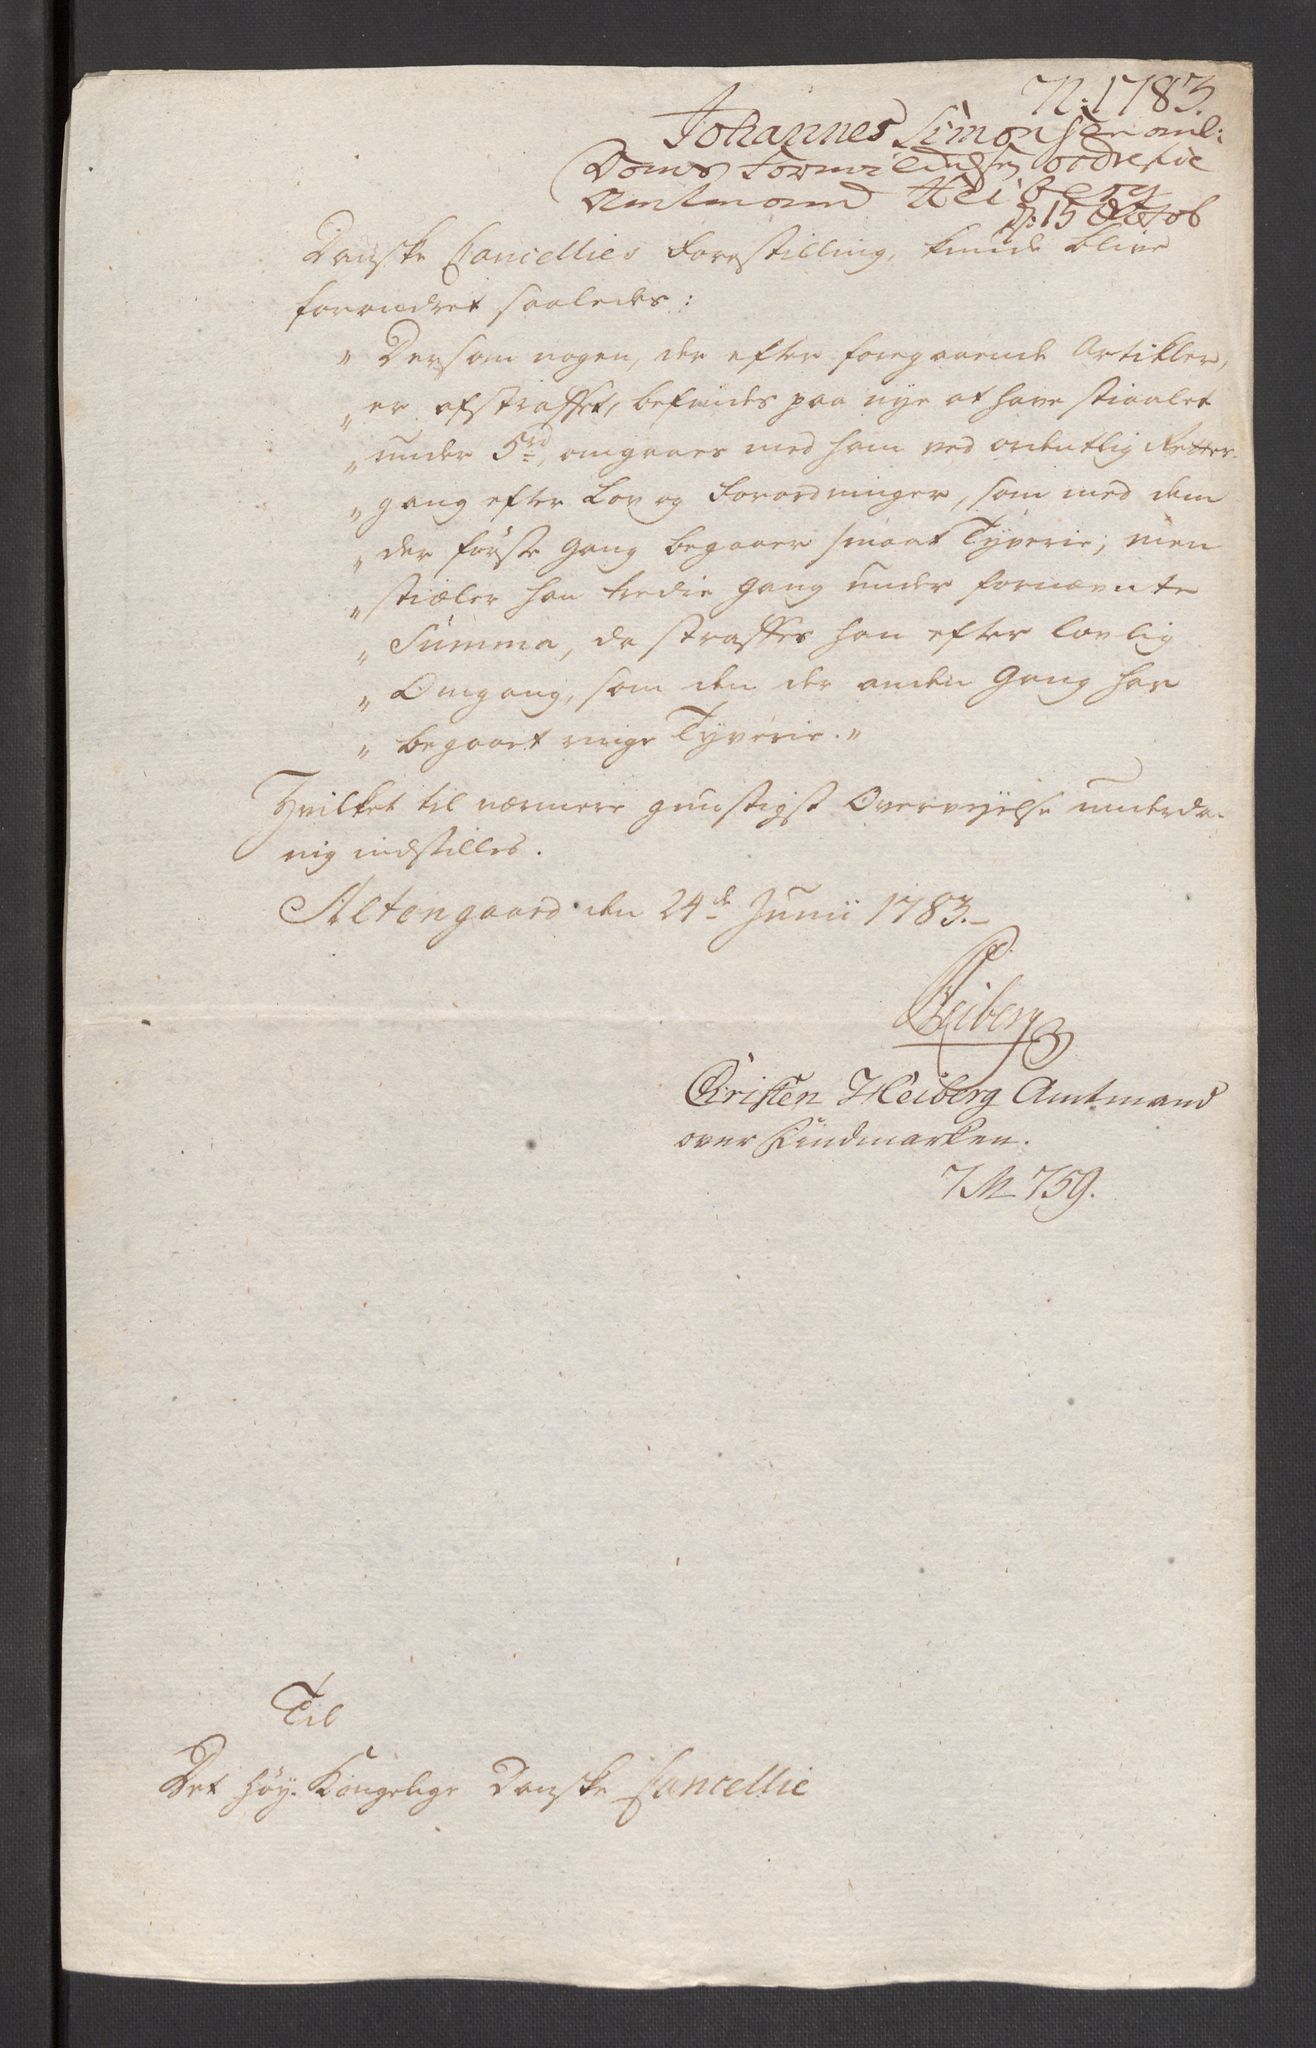 N: 1783.
Johannes Simonsen anl:
Doms Formildelsen
Amtmand Heiberg
D: 15 Octob
Danske Cancellies Forestilling, kunde blive
forandret saaledes:
"Dersom nogen, der efter foregaaende Artikler,
"er afstraffet, befindes paa nye at have stiaalet
"under 5rd, omgaaes med ham ved ordentlig Retter-
"gang efter Lov og Forordninger, som med dem
"der første Gang begaaer smaat Tyverie; men
"stiæler han tredie Gang under fornævnte
"Summa, da straffes han efter lovlig
"Omgang, som den der anden Gang har
"begaaet ringe Tyverie."
Hvilket til nærmere gunstigst Overveyelse underda-
nig indstilles.
Altengaard den 24de Junii 1783.-
Heiberg
Christen Heiberg Amtmand
over Findmarken.
7M 759.
Til
Det høy-Kongelige Danske Cancellie